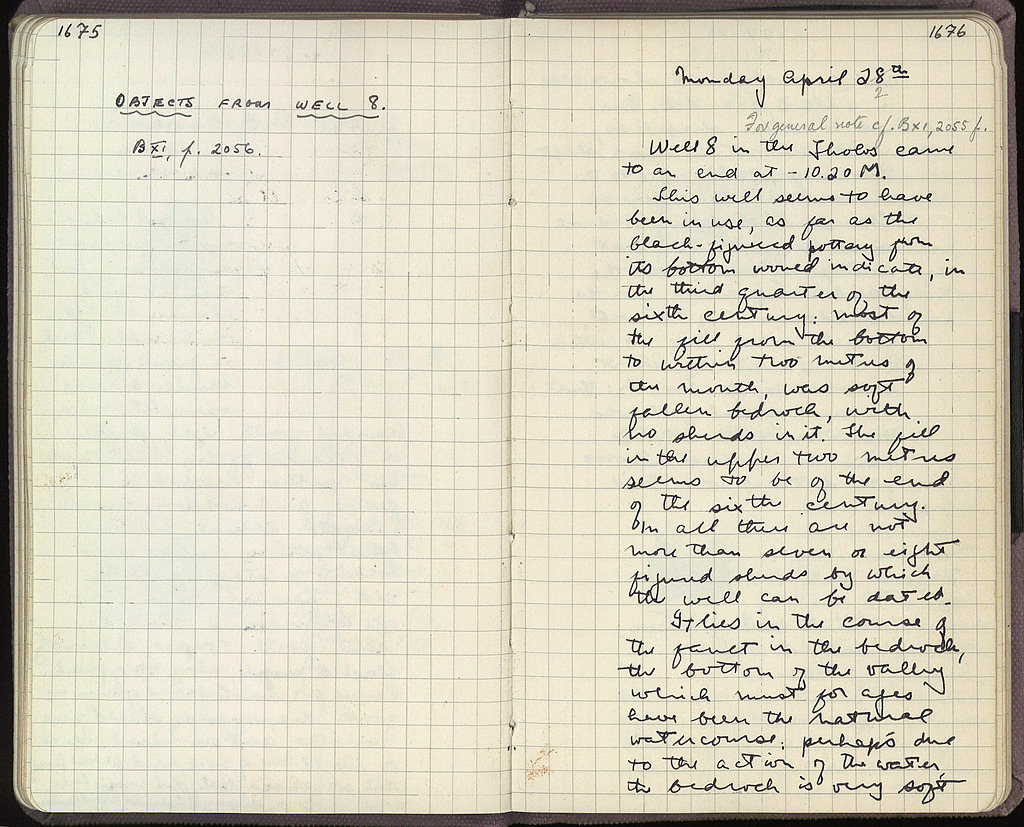 1675
OBJECTS FROM WELL 8.
BXI, p. 2056.
1676
Monday April 28th
2
For general note cf. BXI, 2055 f.
Well 8 in the Tholos came
to an end at -10.20 M.
This well seems to have
been in use, as far as the
black-figured pottery from
its bottom would indicate, in
the third quarter of the
sixth century: most of
the fill from the bottom
to within two metres of
the mouth, was soft
fallen bedrock, with
no sherds in it. The fill
in the upper two metres
seems to be of the end
of the sixth century.
In all there are not
more than seven or eight
figured sherds by which
the well can be dated.
It lies in the course of
the in the bedrock,
the bottom of the valley
which must for ages
have been the natural
watercourse; perhaps due
to the action of the water,
the bedrock is very soft